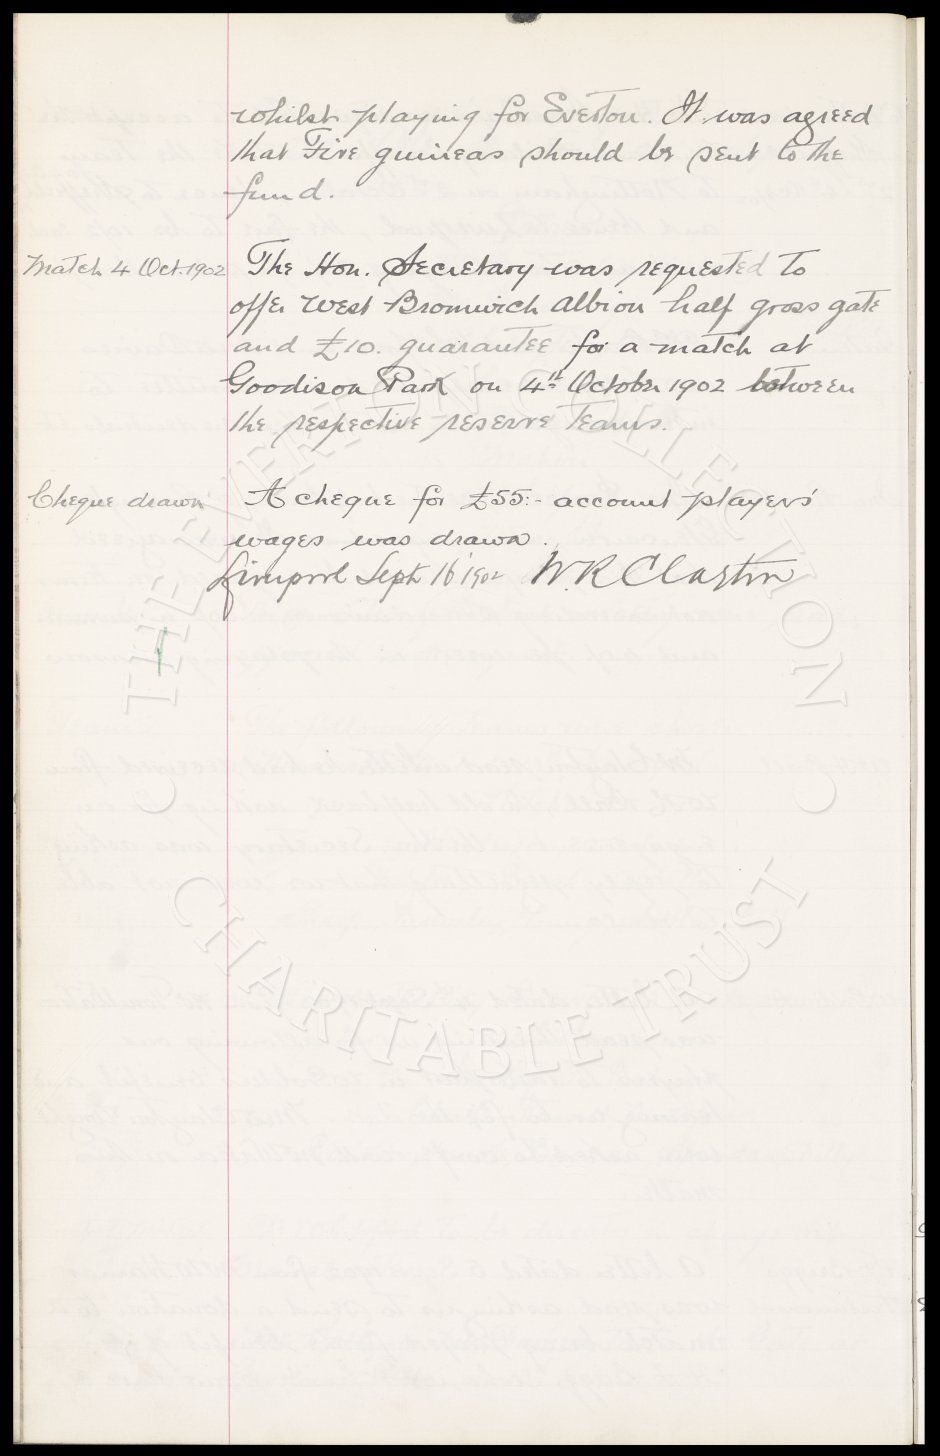 whilst playing for Everton. It was agreed
that Five guineas should be sent to the
fund.
Match 4 Oct. 1902
The Hon. Secretary was requested to
offer West Bromwich Albion half gross gate
and £10. guarantee for a match at
Goodison Park on 4th October 1902 between
the respective reserve Teams.
Cheque drawn
A cheque for £55:- account players'
wages was drawn.
Liverpool Sept 16 1902 W.R Clayton
THE EVERTON COLLECTION
CHARITABLE TRUST